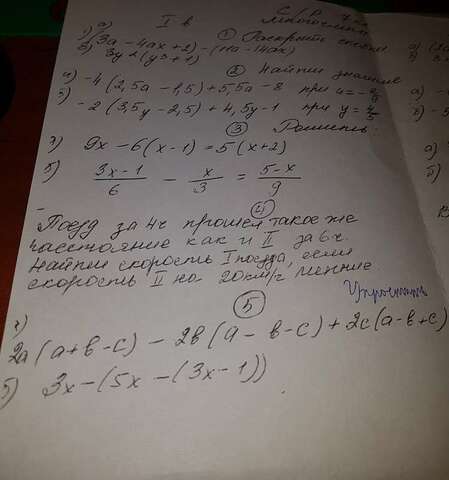 I в С/Р 7 кл
многочлены
① Раскрыть скобки
а) (3а - 4ах + 2) - (11а - 14ах)
б) 3у²(у³ + 1)
② Найти значение
а) -4(2,5а - 1,5) + 5,5а - 8 при а = -2/9
б) -2(3,5у - 2,5) + 4,5у - 1 при у = 4/5
③ Решить:
а) 9х - 6(х - 1) = 5(х + 2)
б) (3х - 1)/6 - х/3 = (5 - х)/9
④
Поезд за 4ч прошел такое же
расстояние как и II за 6ч.
Найти скорость I поезда, если
скорость II на 20км/ч меньше.
⑤ Упростить
а)
2а(а + в - с) - 2в(а - в - с) + 2с(а - в + с)
б) 3х - (5х - (3х - 1))